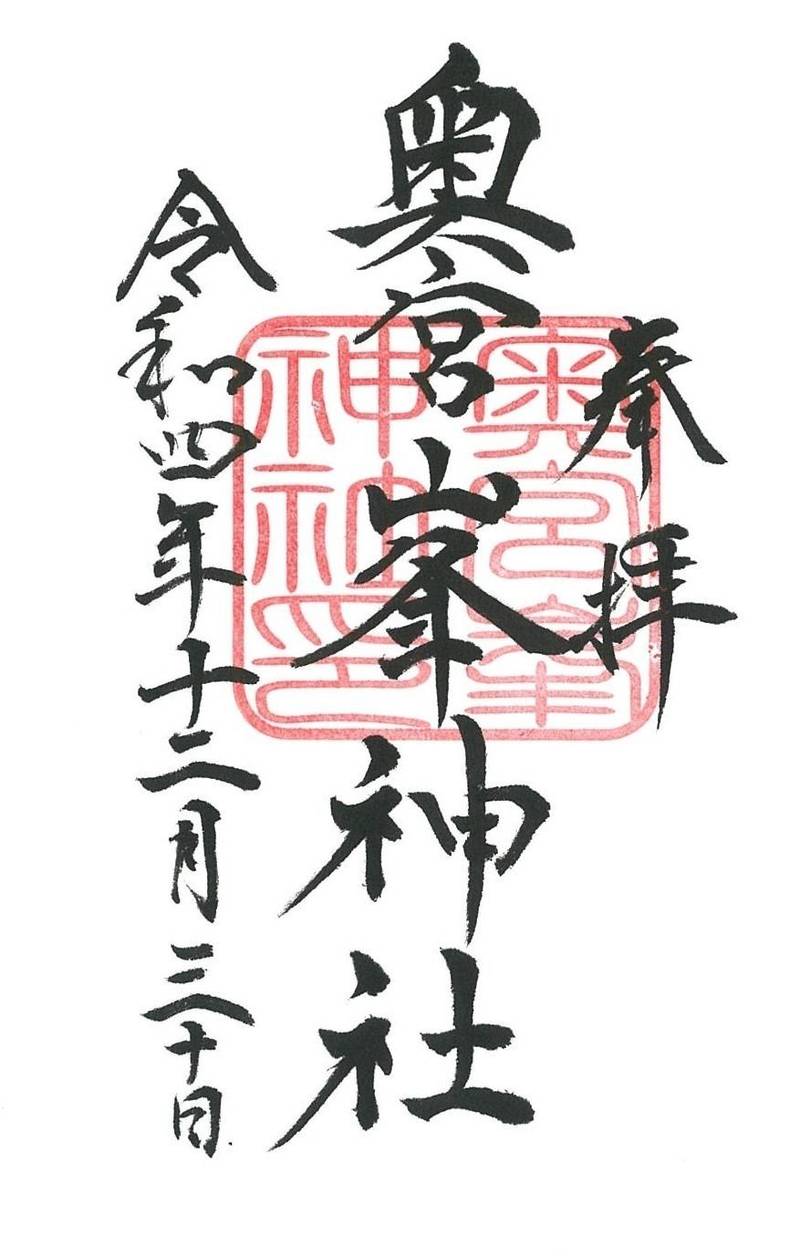 奉拝
奥宮峯神社
令和四年十二月三十日
奥宮峯
神社印